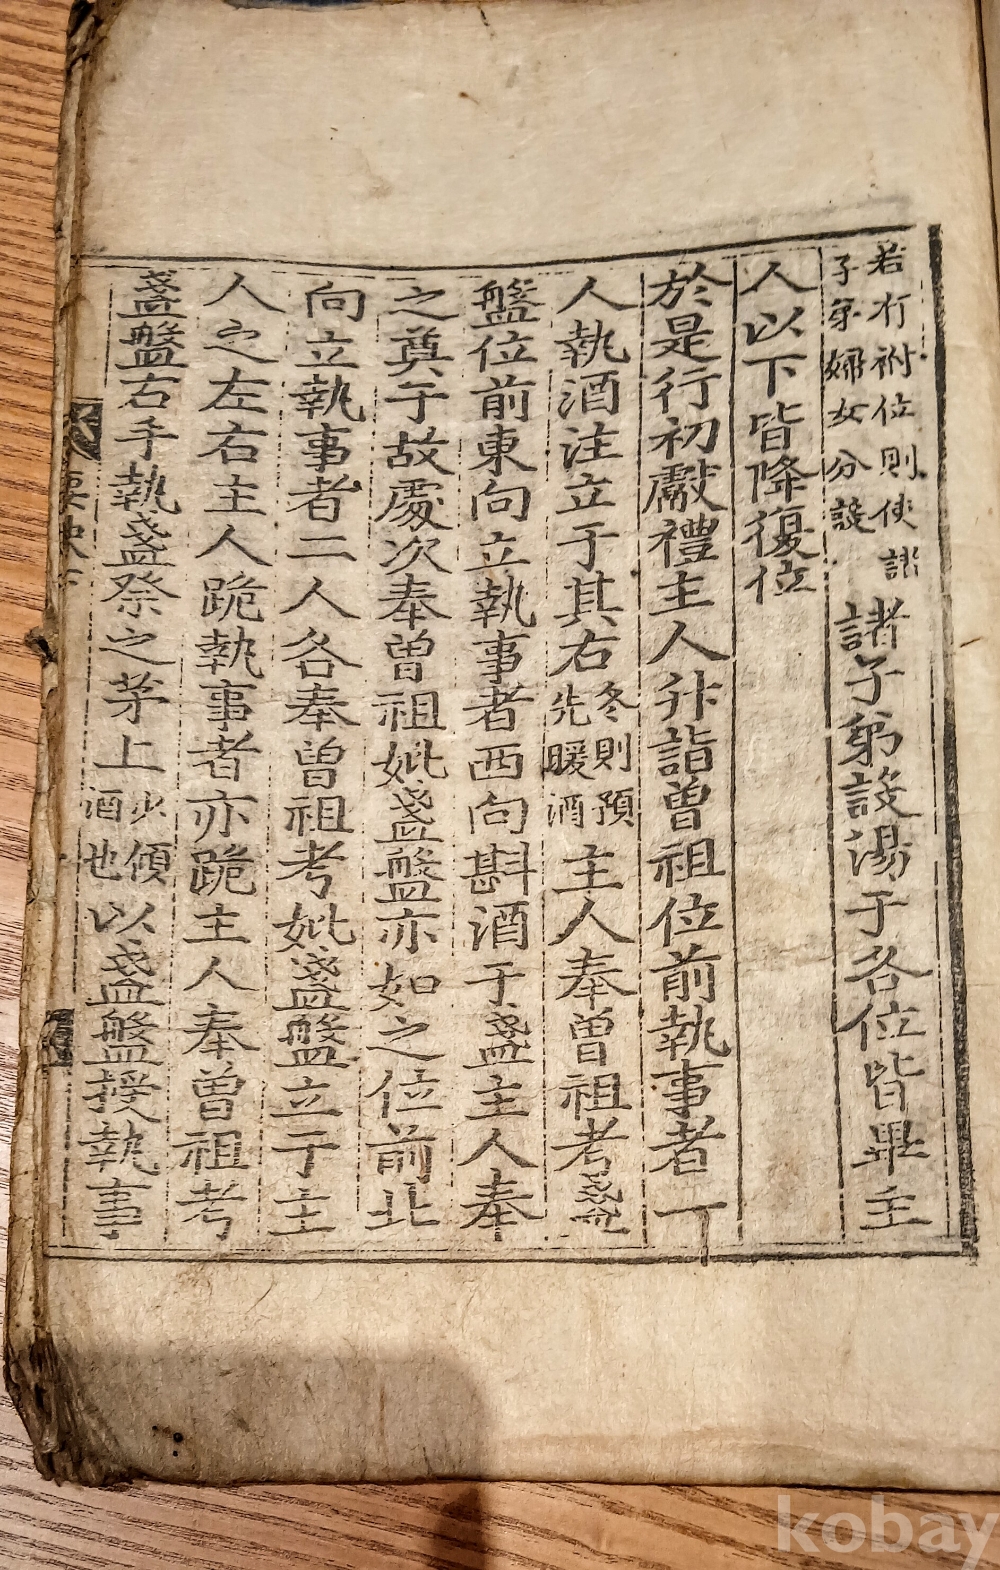 若有祔位則使諸
子弟婦女分設
諸子弟設湯于各位皆畢主
人以下皆降復位
於是行初獻禮主人升詣曾祖位前執事者一
人執酒注立于其右
冬則預
先暖酒
主人奉曾祖考盞
盤位前東向立執事者西向斟酒于盞主人奉
之奠于故處次奉曾祖妣盞盤亦如之位前北
向立執事者二人各奉曾祖考妣盞盤立于主
人之左右主人跪執事者亦跪主人奉曾祖考
盞盤右手執盞祭之茅上
少傾
酒也
以盞盤授執事
要訣下
kobay